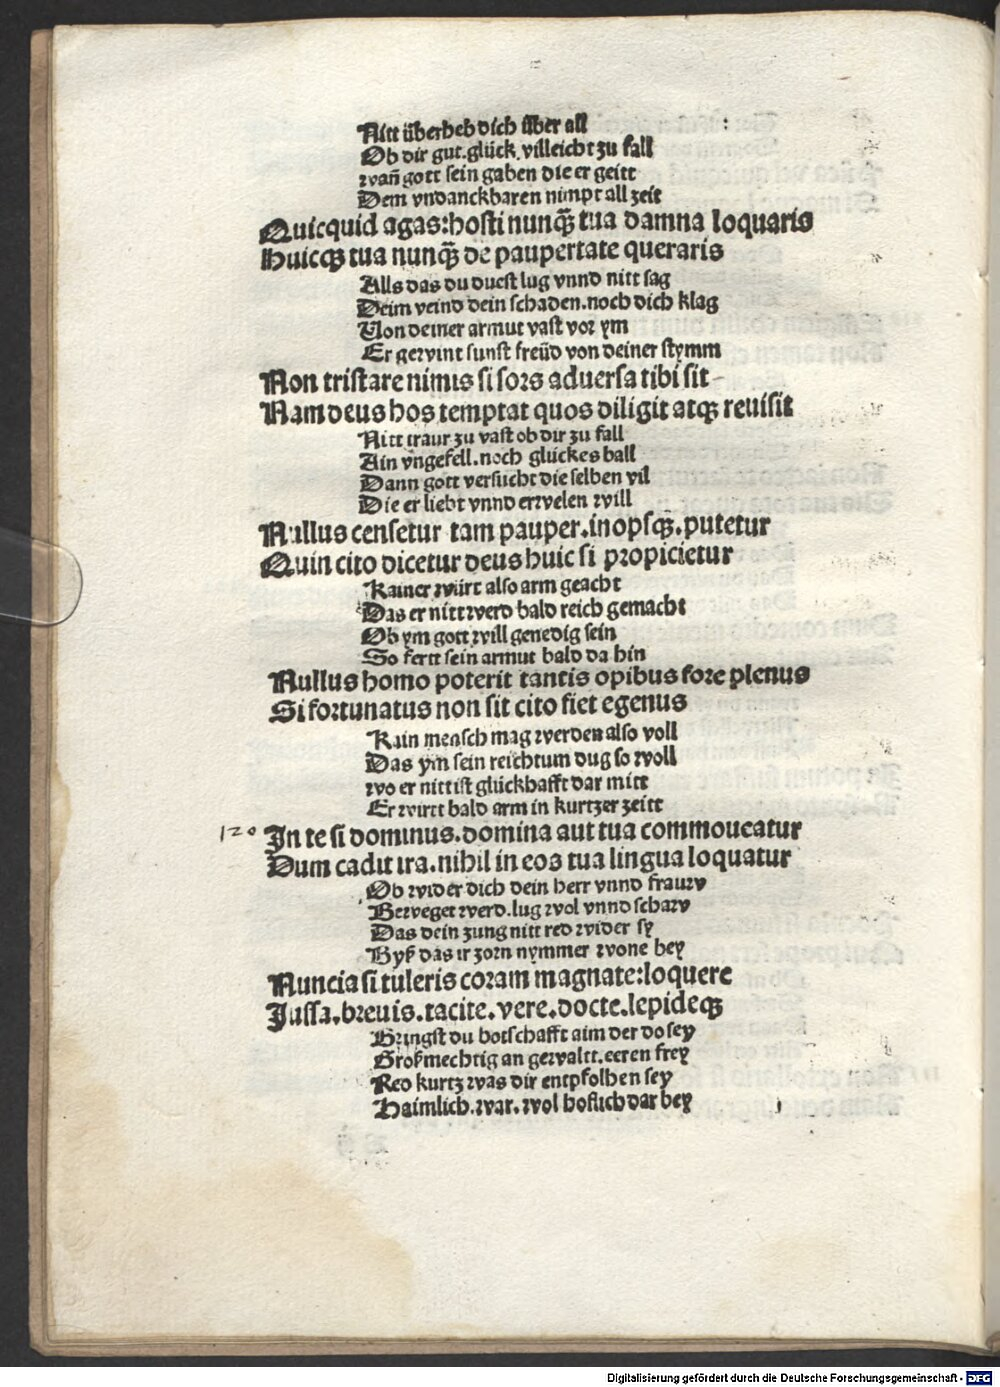 Nitt überheb dich über all
Ob dir gut.glück.villeicht zu fall
wañ gott sein gaben die er geitt
Dem vndanckbaren nimpt all zeit
Quicquid agas:hosti nunq̃ tua damna loquaris
Huicqꝫ tua nunq̃ de paupertate queraris
Alls das du duest lug vnnd nitt sag
Deim veind dein schaden.noch dich klag
Von deiner armut vast vor ym
Er gewint sunst freüd von deiner stymm
Non tristare nimis si sors aduersa tibi sit
Nam deus hos temptat quos diligit atqꝫ reuisit
Nitt traur zu vast ob dir zu fall
Ain vngefell.noch glückes ball
Dann gott versucht die selben vil
Die er liebt vnnd erwelen will
Nullus censetur tam pauper.inopsqꝫ.putetur
Quin cito dicetur deus huic si propicietur
Kainer würt also arm geacht
Das er nitt werd bald reich gemacht
Ob ym gott will genedig sein
So fertt sein armut bald da hin
Nullus homo poterit tantis opibus fore plenus
Si fortunatus non sit cito fiet egenus
Kain mensch mag werden also voll
Das ym sein reichtum dug so woll
wo er nitt ist glückhafft dar mitt
Er wirtt bald arm in kurtzer zeitt
120 In te si dominus.domina aut tua commoueatur
Dum cadit ira.nihil in eos tua lingua loquatur
Ob wider dich dein herr vnnd frauw
Beweget werd.lug wol vnnd schaw
Das dein zung nitt red wider sy
Byß das ir zorn nymmer wone bey
Nuncia si tuleris coram magnate:loquere
Jussa.breuis.tacite.vere.docte.lepideqꝫ
Bringst du botschafft aim der do sey
Großmechtig an gewaltt.eeren frey
Red kurtz was dir entpfolhen sey
Haimlich.war.wol hoflich dar bey
Digitalisierung gefördert durch die Deutsche Forschungsgemeinschaft - DFG